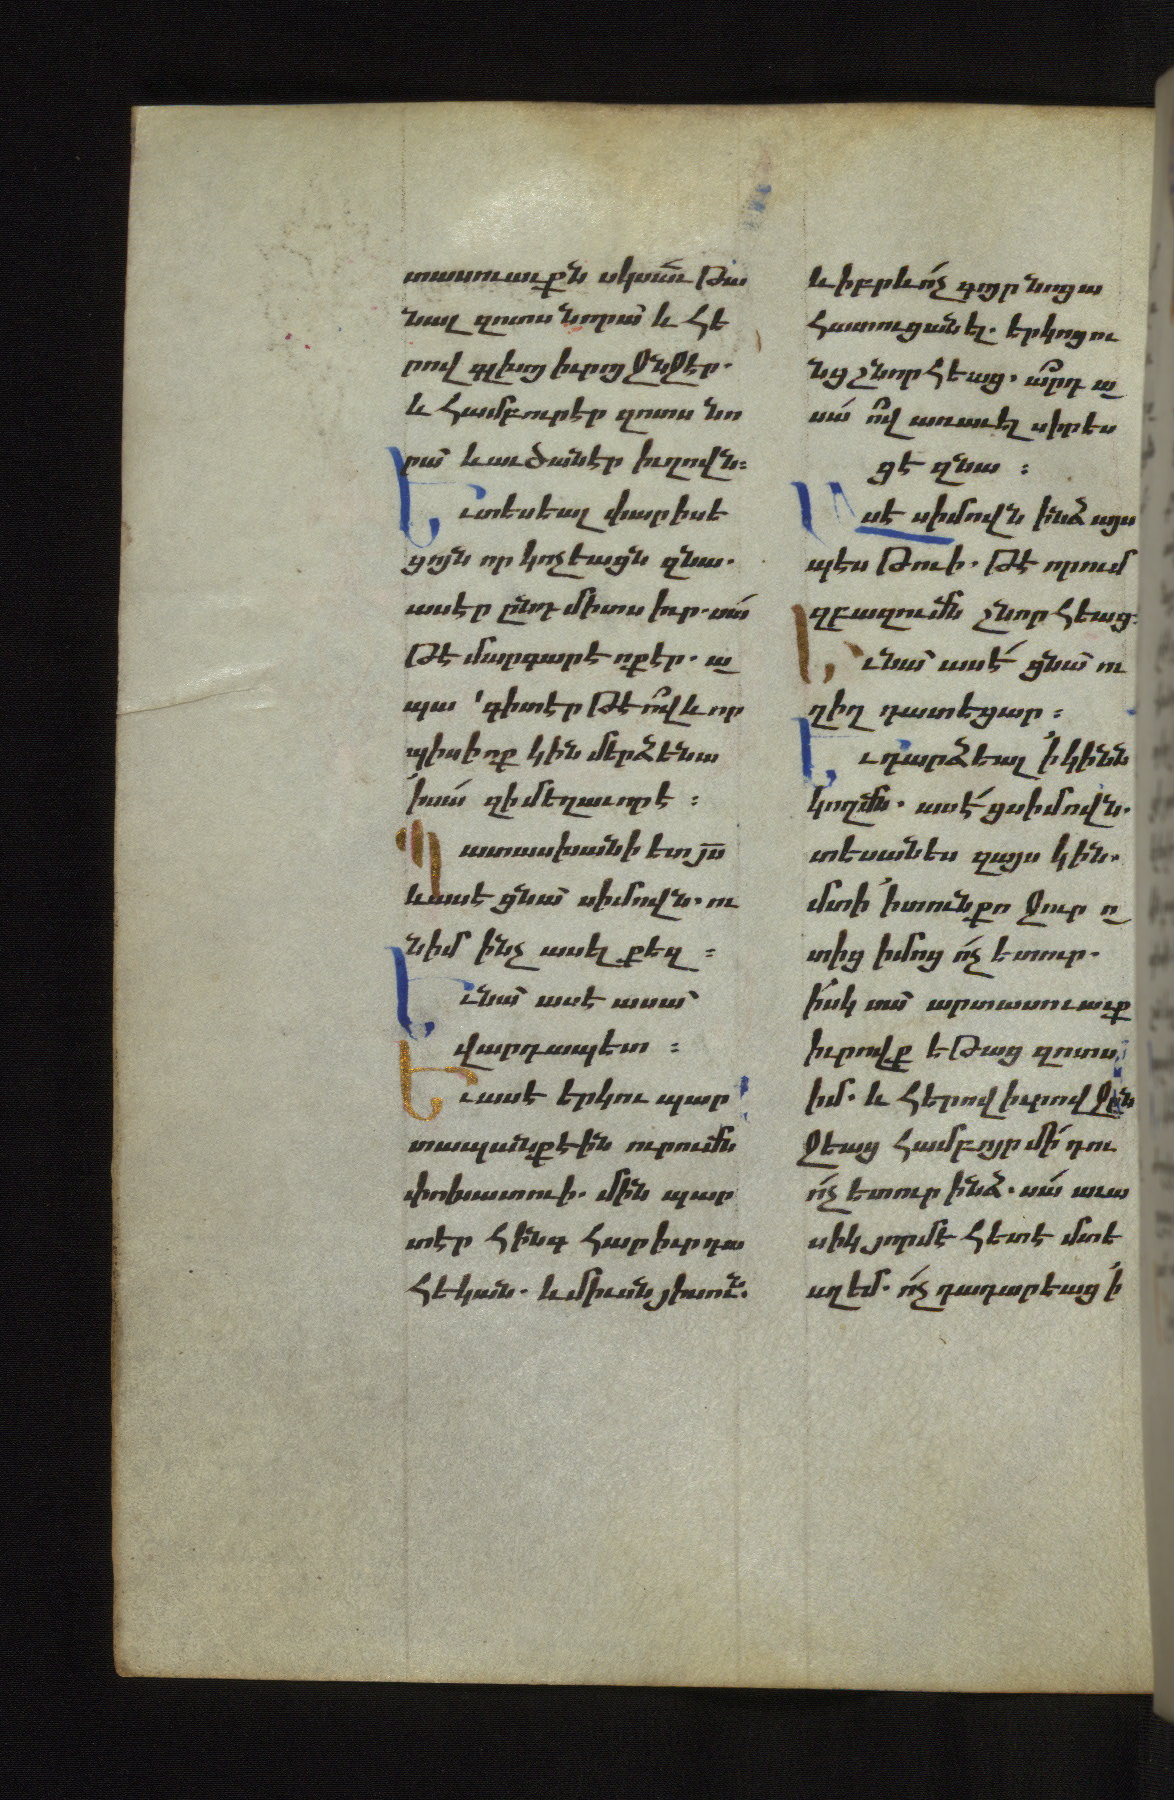 տասուաւքն սկսաւ թա
նալ զոտս նորա՛ և հե
րով գլխոյ իւրոյ ջնջէր.
և համբուրէր զոտս նո
րա՛ և աւծանէր իւղովն։
Եւ տեսեալ փարիսե
ցոյն որ կոչեացն զնա.
ասէր ընդ միտս իւր. սա՛
թէ մարգարէ ոք էր. ա
պա՛ գիտէր թէ ո՛վ և որ
պիսի ոք կին մերձենա
՛ի սա՛ զի մեղաւոր է ։
Պատասխանի ետ յս
և ասէ ցնա՛ սիմովն. ու
նիմ ինչ ասել քեզ ։
Եւ նա՛ ասէ ասա՛
վարդապետ ։
Եւ ասէ երկու պար
տապանք էին ուրումն
փոխատուի. մին պար
տէր հինգ հարիւր դա
հեկան. և միւսն յիսուն.
և իբրև ո՛չ գոյր նոցա
հատուցանել. երկոցու
նց շնորհեաց. ա՛րդ ա
սա՛ ո՛վ առաւել սիրես
ցէ զնա ։
Ասէ սիմովն ինձ այս
պես թուի. թէ որում
զբազումն շնորհեաց։
Եւ նա՛ ասէ՛ ցնա՛ ու
ղիղ դատեցար ։
Եւ դարձեալ ՛ի կինն
կոյմն. ասէ՛ ցսիմովն.
տեսանես զայս կին.
մտի ՛ի տունքո ջուր ո
տից իմոց ո՛չ ետուր.
ի՛սկ սա՛ արտասուաւք
իւրովք եթաց զոտս
իմ. և հերով իւրով ջն
ջեաց համբոյր մի՛ դու
ո՛չ ետուր ինձ. սա՛ աւա
սիկ յորմէ հետէ մտե
ալ եմ. ո՛չ դադարեաց ՛ի